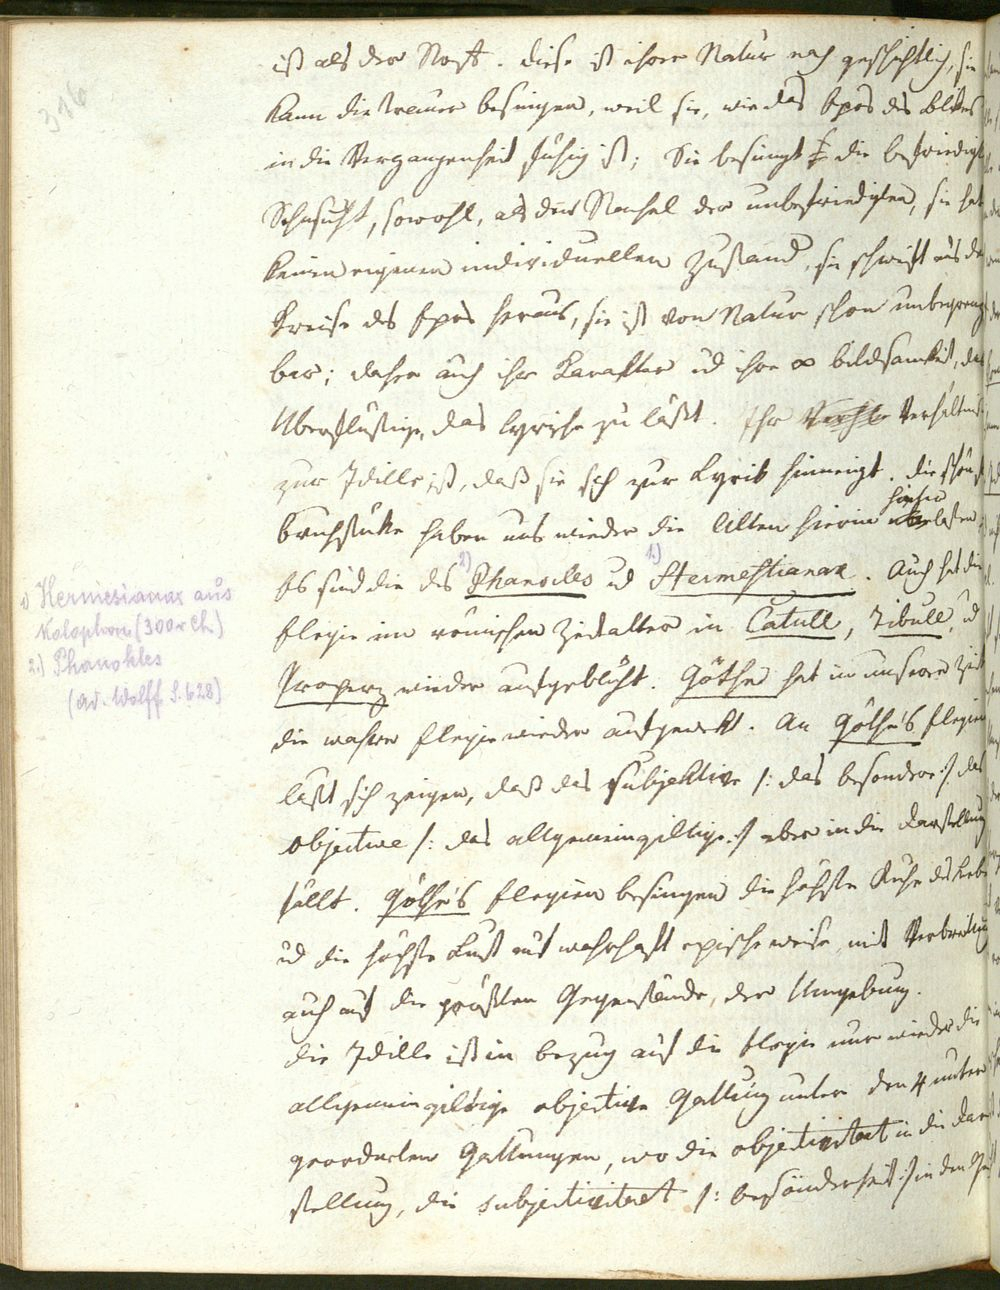 376
ist als der Rest. diese ist ihrer Natur nach geschichtlich, sie
kann die trauer besingen, weil sie, wie das Epos des blikes
in die Vergangenheit fähig ist; Sie besingt die befriedigte
Sehnsucht, sowohl, als den Stachel der unbefriedigten, sie hat
keinen eigenen individuellen Zustand, sie schweift aus dem
Kreise des Epos heraus, sie ist von Natur schon unbegrenz
bar; daher auch ihr Karakter ud ihre ∞ bildsamkeit, das
Überflüssige, das lyrische zu läßt. Ihr Verhältniß
zur Idille ist, daß sie sich zur Lyrik hinneigt. die schönsten
bruchstüke haben uns wieder die Alten hierin hinter lassen
Es sind die des 2) Phanocles ud 1.) Hermestianax. Auch hat die
Elegie im römischen Zeitalter in Catull, Tibull, ud
Properz wieder aufgeblüht. Göthe hat in unserer Zeit
die wahre Elegie wieder aufgewekt. An Göthe's Elegien
läßt sich zeigen, daß das subjektive /: das besondere :/ das
objective /: das allgemeingiltige :/ aber in die darstellung
fällt. Göthe's Elegien besingen die höchste Ruhe des Lebens
ud die höchste Lust auf wahrhaft epische weise, mit Verbreitung
auch auf die größten Gegenstände, der Umgebung.
die Idille ist in bezug auf die Elegie nur wieder die
allgemeingiltige objective Gattung unter den 4 unter
geordneten Gattungen, wo die objectivitaet in die dar
stellung, die subjectivitaet /: besonderheit :/ in den
1) Hermesianax aus
Kolophon (300 v Ch.)
2.) Phanokles
(ad. Wolff S. 628)